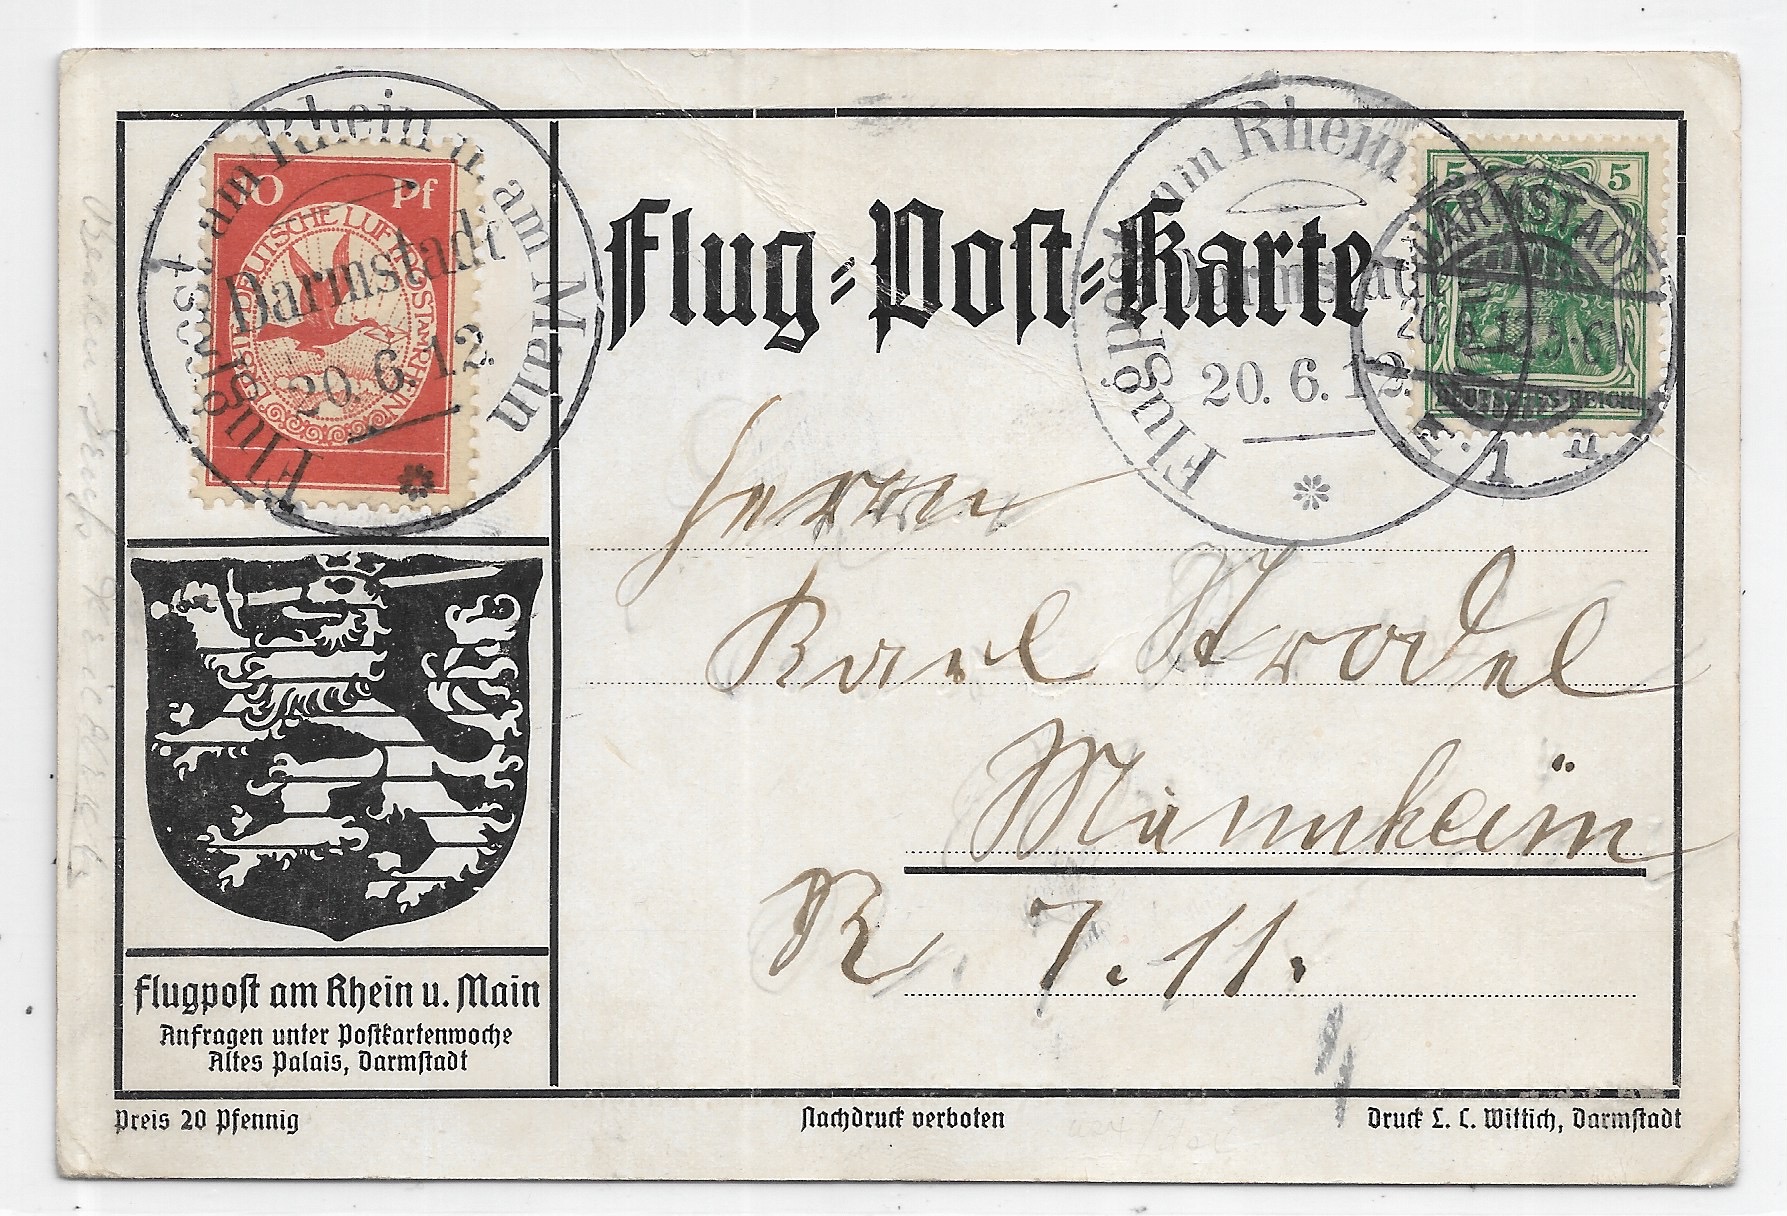 10 Pf
DEUTSCHE LUFTPOST AM RHEIN
Flugpost am Rhein u. am Main
Darmstadt
20.6.12.
Flug-Post-Karte
Flugpost am Rhein
Darmstadt
20.6.12.
5 5
DEUTSCHES REICH
DARMSTADT
20.6.12.5-6N
1
Herrn
Karl Strodel
Mannheim
R 7. 11.
Flugpost am Rhein u. Main
Anfragen unter Postkartenwoche
Altes Palais, Darmstadt
Preis 20 Pfennig
Nachdruck verboten
Druck L. C. Wittich, Darmstadt